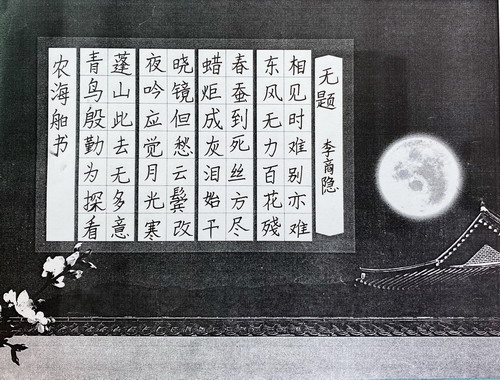 无题 李商隐
相见时难别亦难
东风无力百花残
春蚕到死丝方尽
蜡炬成灰泪始干
晓镜但愁云鬓改
夜吟应觉月光寒
蓬山此去无多意
青鸟殷勤为探看
农海舶书